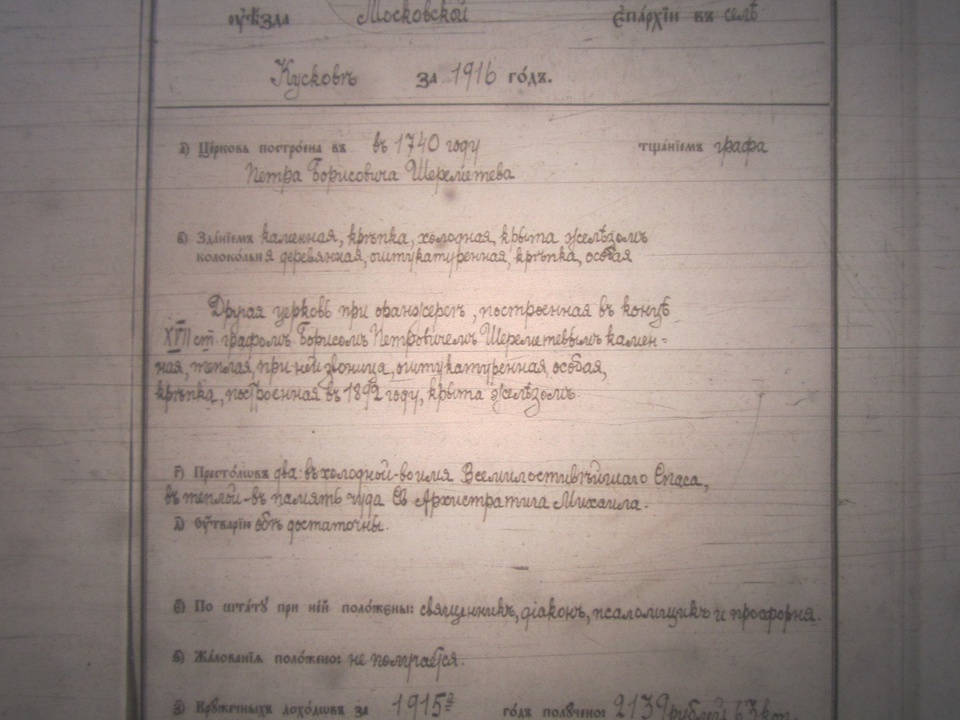 оуѣзда Московской Єпархіи въ селѣ
Кусковѣ за 1916 годъ.
а) Церковь построена въ въ 1740 году тщаніемъ графа
Петра Борисовича Шереметева
в) Зданіемъ каменная, крѣпка, холодная, крыта желѣзомъ
колокольня деревянная, оштукатуренная, крѣпка, особая
Другая церковь при оранжереѣ, построенная въ концѣ
XVII ст. графомъ Борисомъ Петровичемъ Шереметевымъ камен=
ная, теплая, при ней звоница, оштукатуренная, особая,
крѣпка, построенная въ 1892 году, крыта желѣзомъ.
г) Престолѡвъ два: въ холодной-во имя Всемилостивѣйшаго Спаса,
въ теплой-въ память чуда Св Архистратига Михаила.
д) Оутварію обѣ достаточны.
є) По штату при ней положены: священникъ, діаконъ, псаломщикъ и просфорня.
ѕ) Жалованіѧ положено: не получается.
з) Кружечныхъ доходѡвъ за 1915й годъ получено: 2139 рублей 63 коп